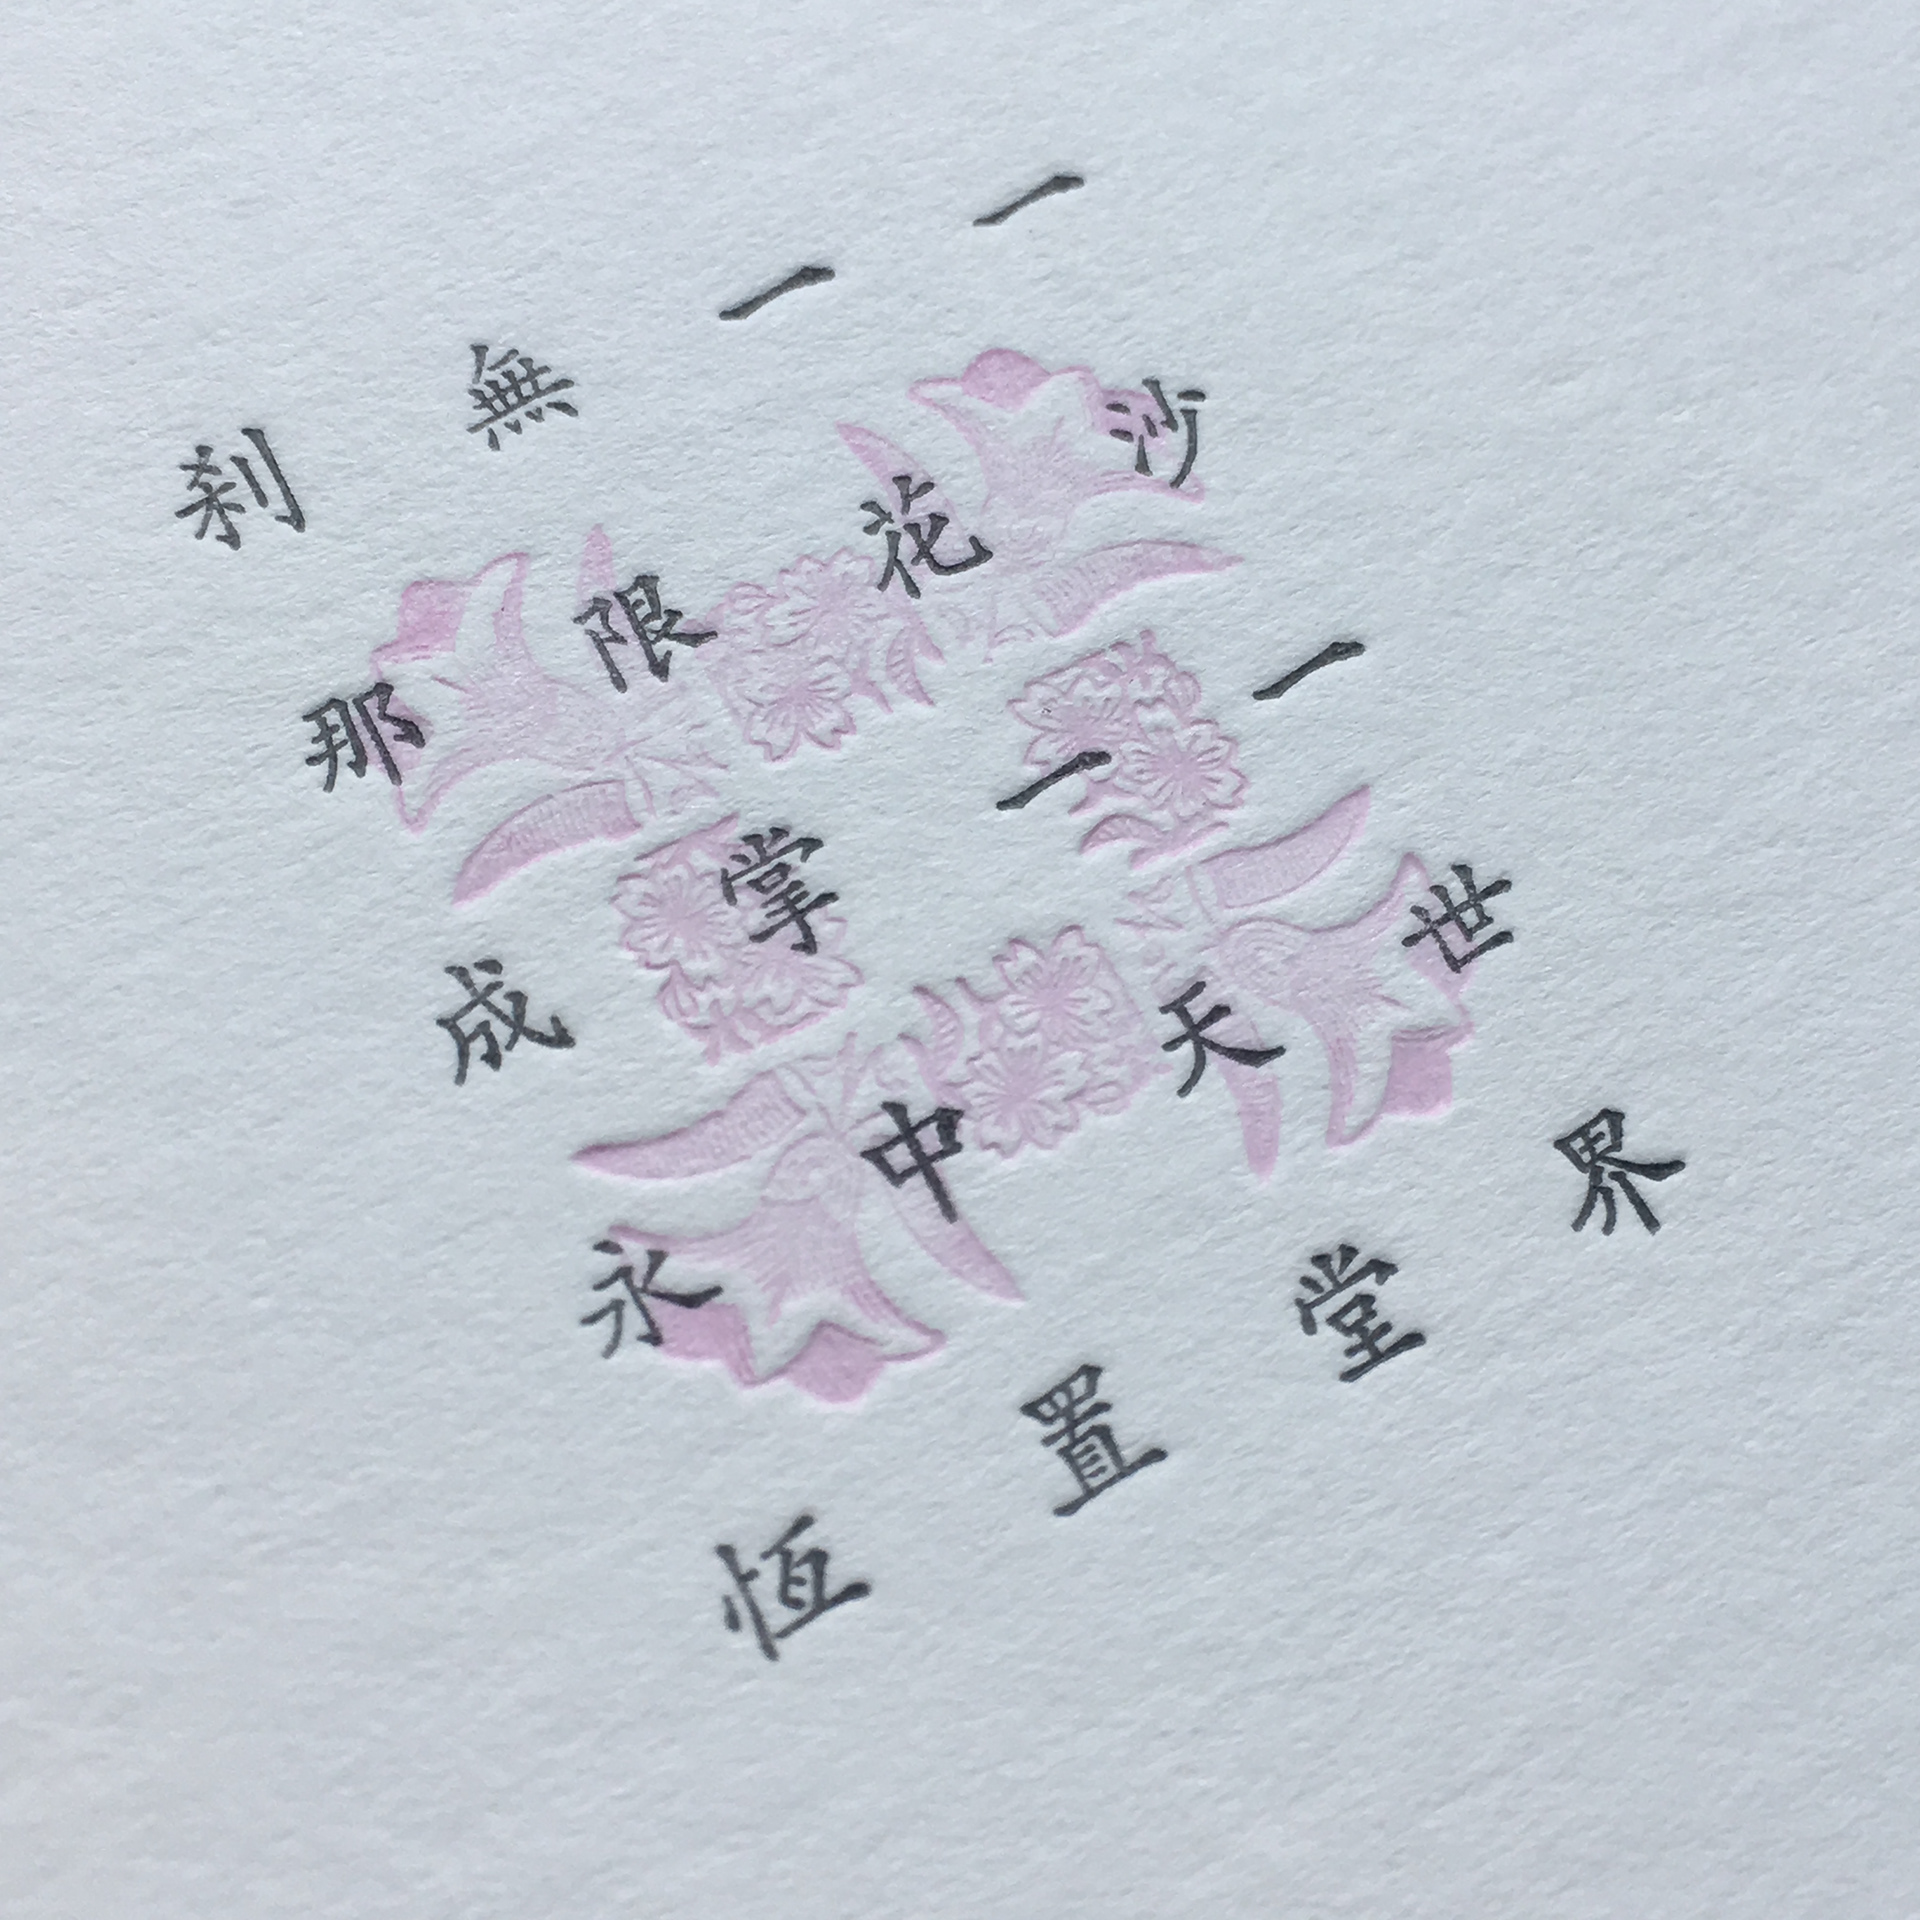 一沙一世界
一花一天堂
無限掌中置
刹那成永恆